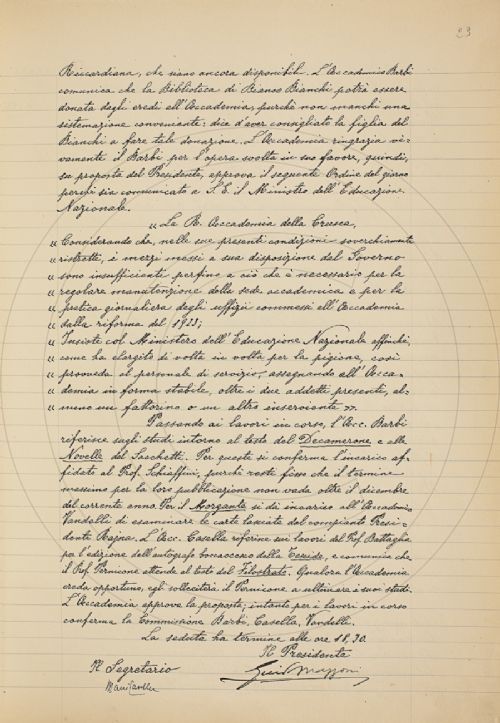 23
Riccardiana, che siano ancora disponibili. L'Accademico Barbi
comunica che la Biblioteca di Bianco Bianchi potrà essere
donata dagli eredi all'Accademia, purché non manchi una
sistemazione conveniente: dice d'aver consigliato la figlia del
Bianchi a fare tale donazione. L'Accademia ringrazia vi-
vamente il Barbi per l'opera svolta in suo favore, quindi,
su proposta del Presidente, approva il seguente Ordine del giorno
perché sia comunicato a S. E. il Ministro dell'Educazione
Nazionale.
"La R. Accademia della Crusca,
" Considerando che, nelle sue presenti condizioni soverchiamente
" ristrette, i mezzi messi a sua disposizione dal Governo
" sono insufficienti perfino a ciò che è necessario per la
" regolare manutenzione della sede accademica e per la
" pratica giornaliera degli uffizii commessi all'Accademia
" dalla riforma del 1923;
" Insiste col Ministero dell'Educazione Nazionale affinché,
" come ha elargito di volta in volta per la pigione, così
" provveda al personale di servizio, assegnando all'Acca-
" demia in forma stabile, oltre i due addetti presenti, al-
" meno un fattorino o un altro inserviente ".
Passando ai lavori in corso, l'Acc. Barbi
riferisce sugli studi intorno al testo del Decamerone e alle
Novelle del Sacchetti. Per queste si conferma l'incarico af-
fidato al Prof. Schiaffini, purché resti fisso che il termine
massimo per la loro pubblicazione non vada oltre il dicembre
del corrente anno. Per il Morgante si dà incarico all'Accademico
Vandelli di esaminare le carte lasciate dal compianto Presi-
dente Rajna. L'Acc. Casella riferisce sui lavori del Prof. Battaglia
per l'edizione dell'autografo boccaccesco della Teseida, e comunica che
il Prof. Pernicone attende al testo del Filostrato. Qualora l'Accademia
creda opportuno, egli solleciterà il Pernicone a ultimare i suoi studi.
L'Accademia approva la proposta; intanto per i lavori in corso
conferma la Commissione Barbi, Casella, Vandelli.
La seduta ha termine alle ore 18,30.
Il Presidente
Il Segretario
Guido Mazzoni